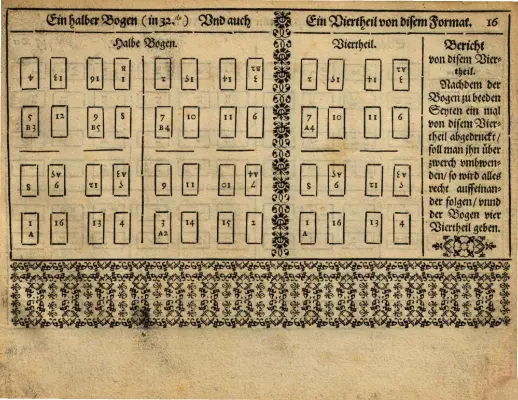 Ein halber Bogen (in 32.) Vnd auch
Ein Viertheil von disem Format. 16
Halbe Bogen.
Viertheil.
4 13 16 1 2 15 14 3 2 15 14 3 A2
5 12 9 8 7 10 11 6 7 10 11 6
B3 B5 B4 A4
8 9 A5 12 5 A3 6 11 10 7 A4 8 9 A5 12 5 A3
1 16 13 4 3 14 15 2 1 16 13 4
A A2 A
Bericht
von disem Vier⸗
theil.
Nachdem der
Bogen zu beeden
Seyten ein mal
von disem Vier⸗
theil abgedruckt/
soll man jhn über
zwerch vmbwen⸗
den/ so wird alles
recht auffeinan⸗
der folgen/ vnnd
der Bogen vier
Viertheil geben.